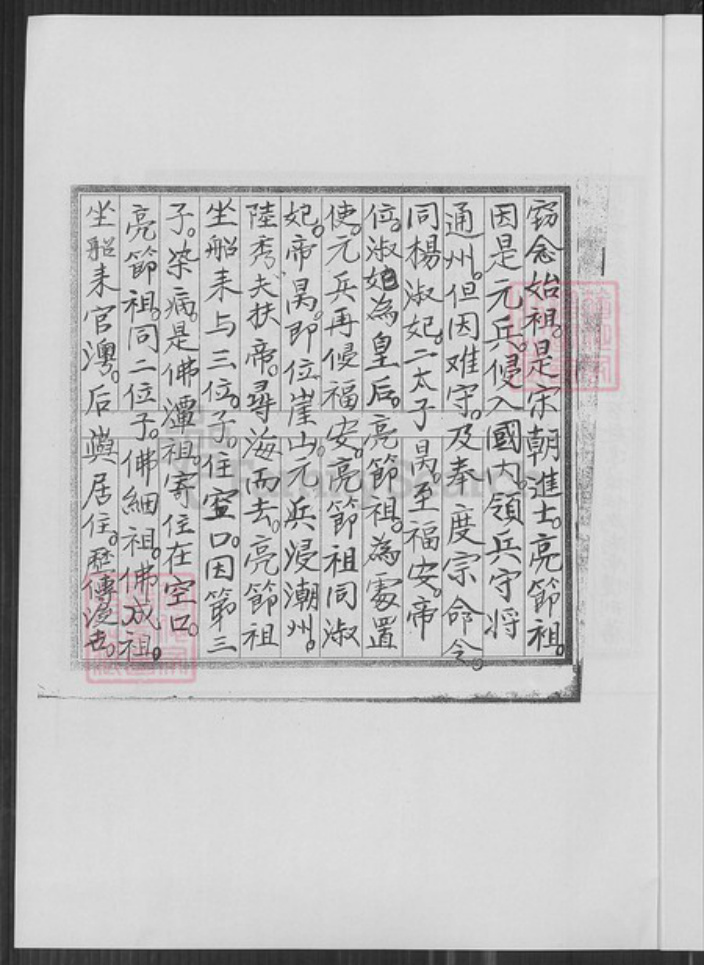 窃念始祖。是宋朝進士。亮節祖。
因是元兵。侵入國內。領兵守将
通州。但因难守。及奉度宗命令。
同楊淑妃。二太子昺。至福安。帝
位。淑妃為皇后。亮節祖。為處置
使。元兵再侵福安。亮節祖同淑
妃。帝昺。即位崖山。元兵浸潮州。
陸秀夫扶帝。尋海而去。亮節祖
坐船来与三位。子。住空口。因第三
子。染病。是佛潭祖。寄住在空口。
亮節祖。同二位子。佛細祖。佛成祖。
坐船来官澳。后與居住。歷傳